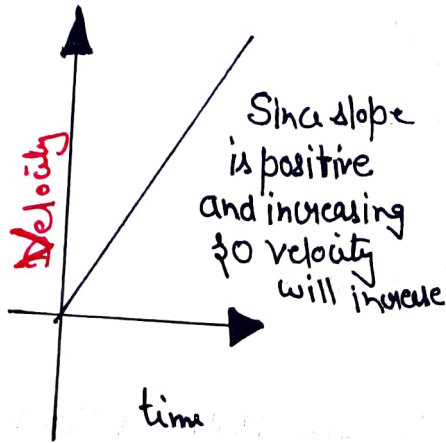 Velocity
Since slope
is positive
and increasing
so velocity
will increase
time